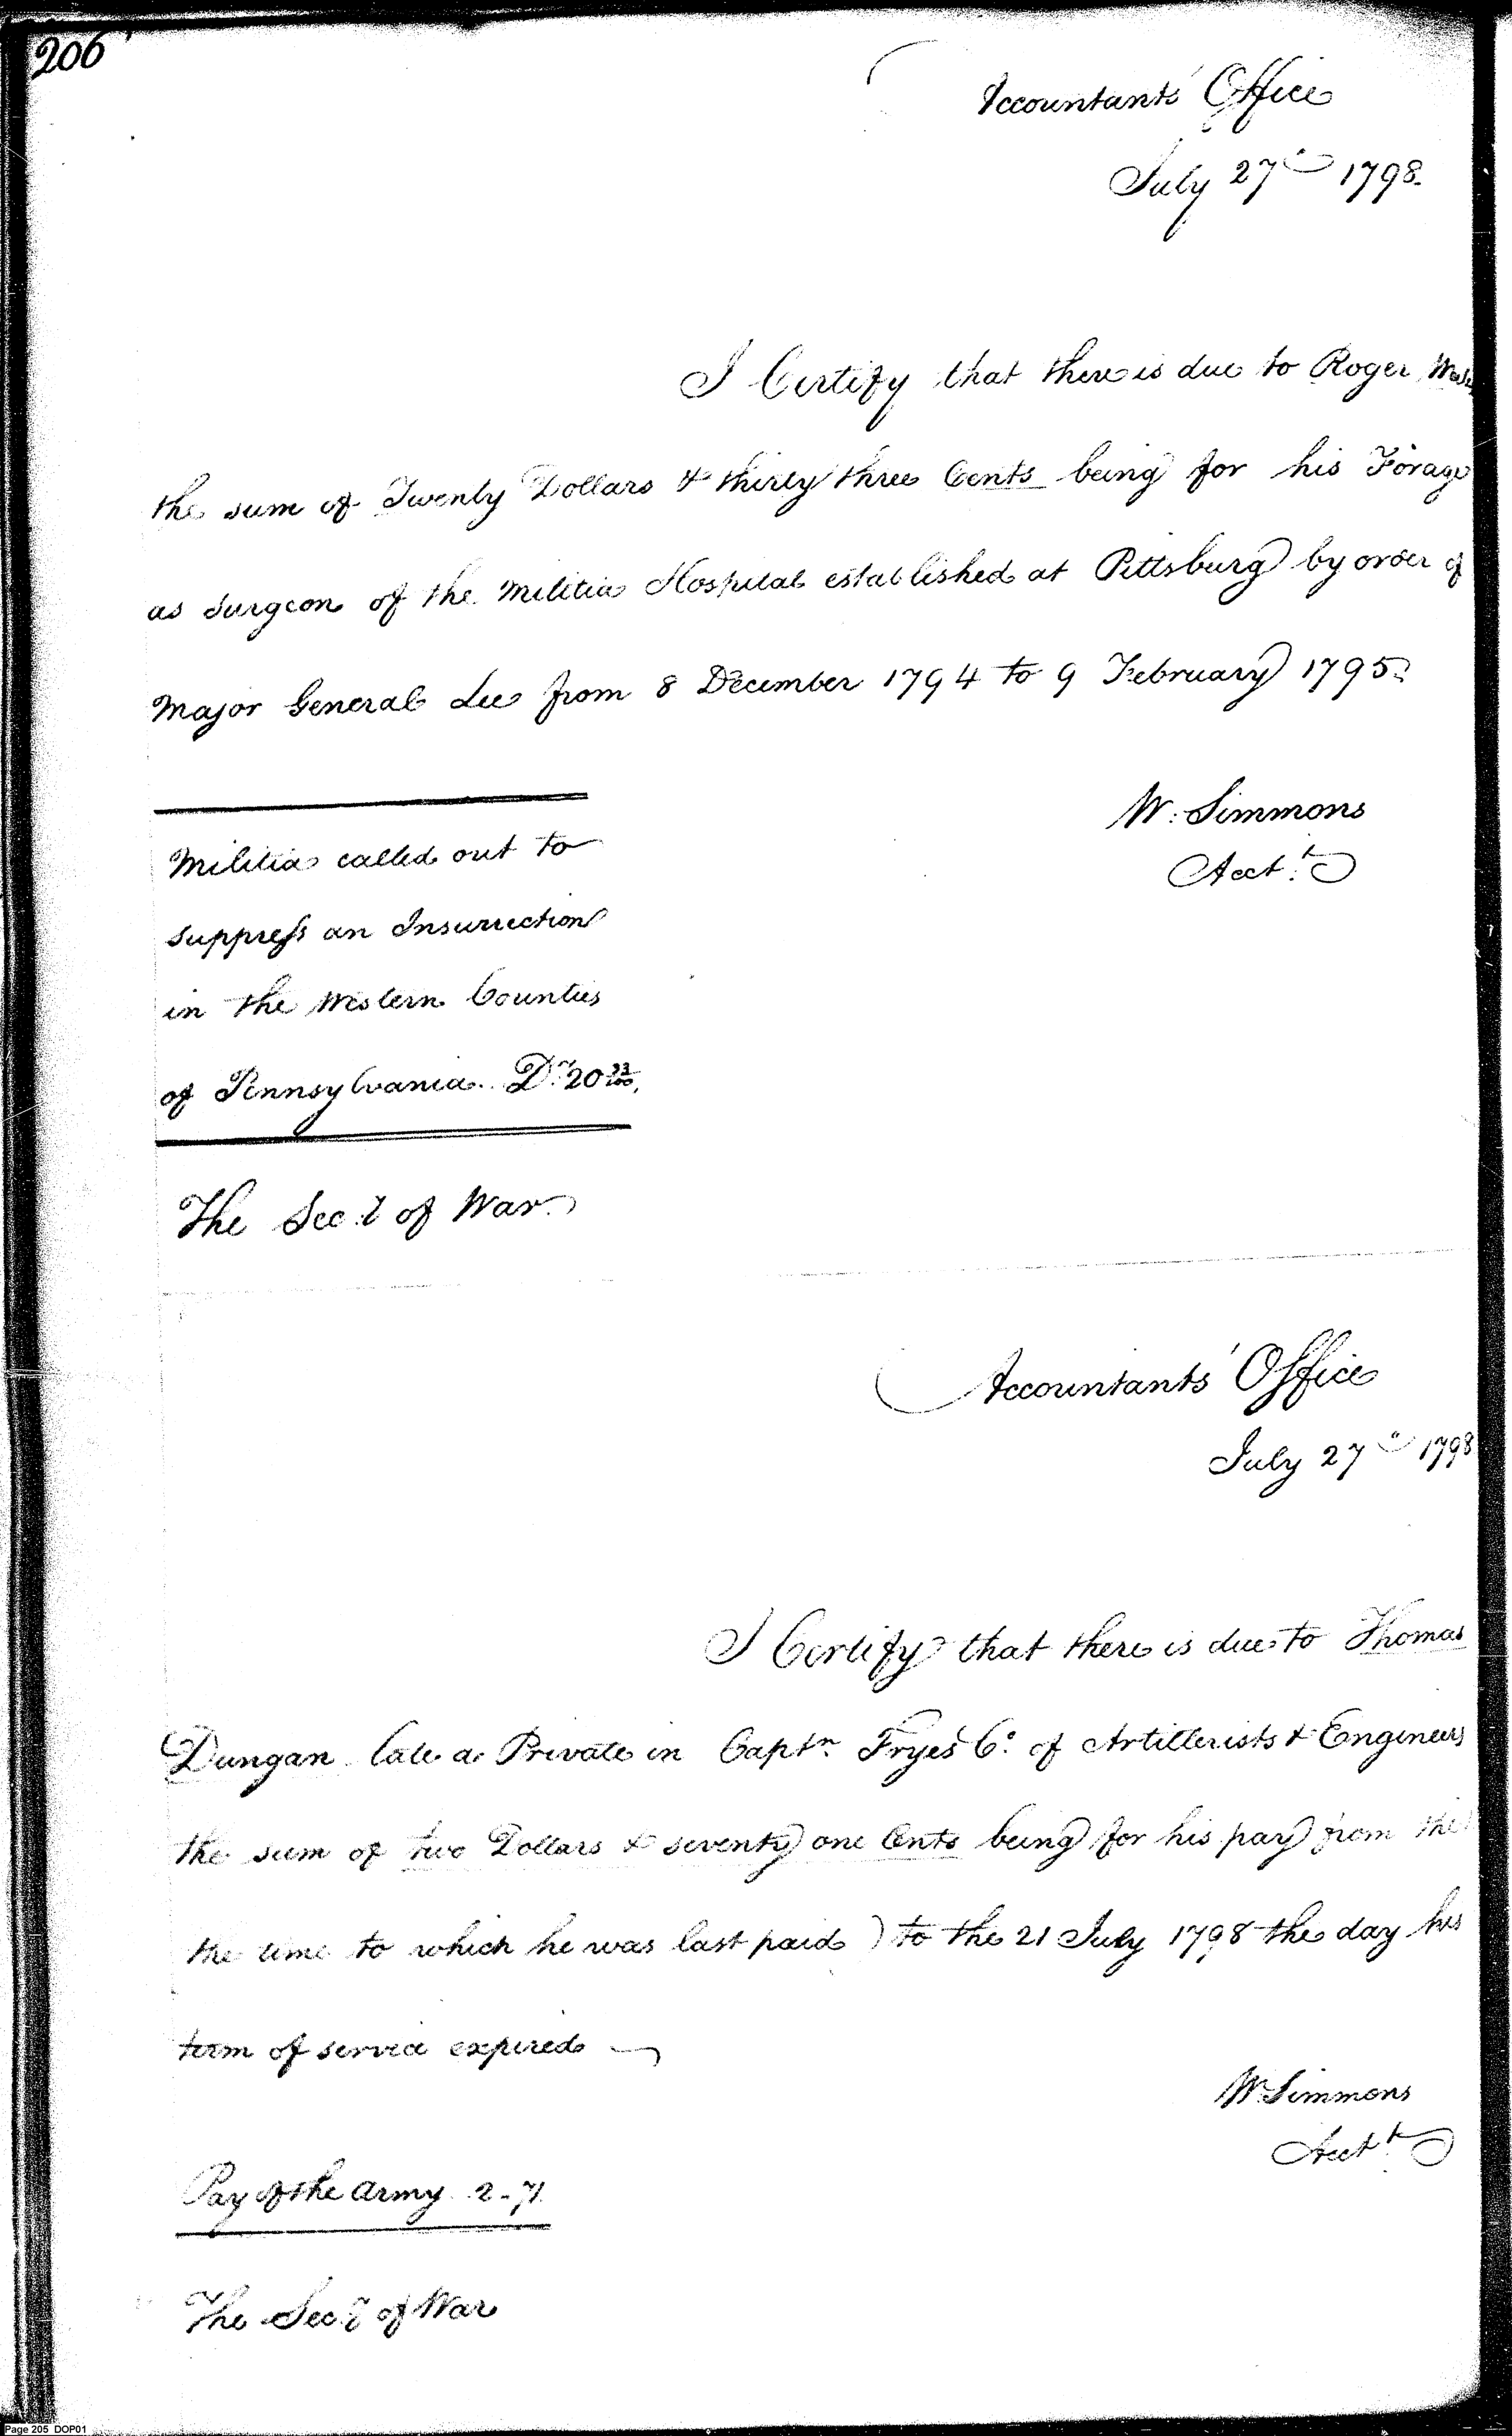 206
Accountants' Office
July 27th 1798.
I Certify that there is due to Roger
the sum of Twenty Dollars & thirty three Cents being for his Forage
as Surgeon of the Militia Hospital established at Pittsburg by order of
Major General Lee from 8 December 1794 to 9 February 1795.
W. Simmons
Acct.t
Militia called out to
suppress an Insurrection
in the Western Counties
of Pennsylvania. Drs 20 33/100.
The Secy of War
Accountants' Office
July 27th 1798
I Certify that there is due to Thomas
Dungan late a Private in Captn. Fryes Co. of Artillerists & Engineers
the sum of two Dollars & seventy one Cents being for his pay from the
the time to which he was last paid) to the 21 July 1798 the day his
term of service expired
W Simmons
Acct.t
Pay of the army 2-71.
The Secy of War
Page 205 DOP01